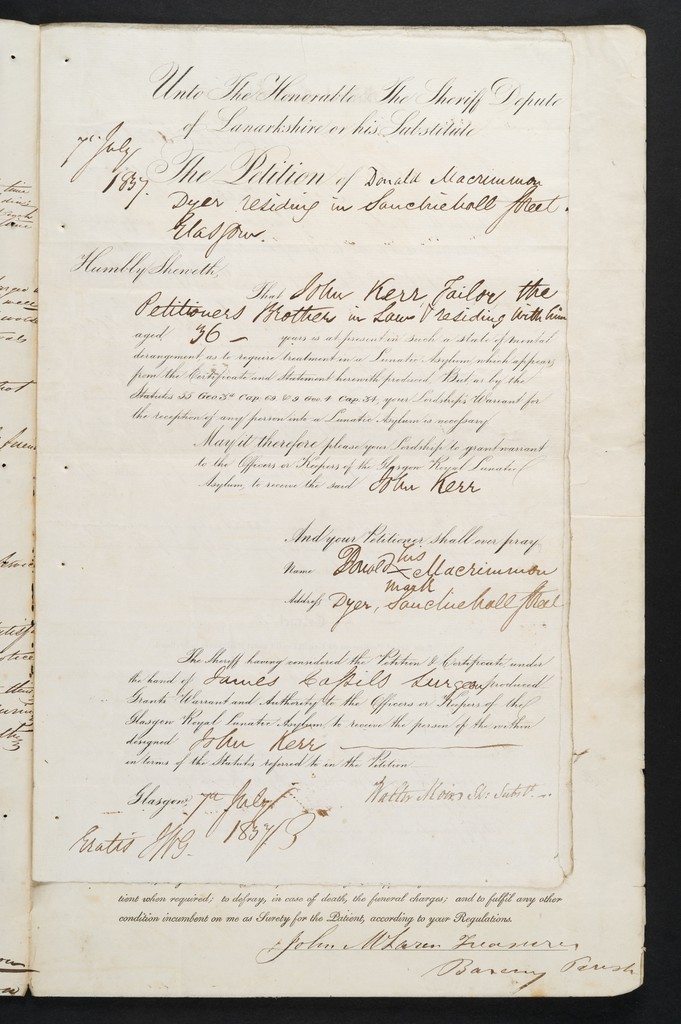 Unto The Honorable The Sheriff Depute
of Lanarkshire or his Substitute
7th July
1837.
The Petition of Donald Macrimmon
Dyer residing in Sauchiehall Street.
Glasgow.
Humbly Sheweth,
That John Kerr, Tailor the
Petitioners Brother in Law residing with him
aged 36 – years is at present in such a state of mental
derangement, as to require treatment in a Lunatic Asylum, which appears
from the Certificate and Statement herewith produced. But as by the
Statutes 55 Geo. 3d Cap. 69 & 9 Geo. 4 Cap. 34, your Lordship's Warrant for
the reception of any person into a Lunatic Asylum is necessary
May it therefore please your Lordship to grant warrant
to the Officers or Keepers of the Glasgow Royal Lunatic
Asylum, to receive the said John Kerr
And your Petitioner shall ever pray.
Name Donald his x mark Macrimmon
Address Dyer, Sauchiehall Street
The Sheriff having considered the Petition & Certificate under
the hand of James Cassils Surgeon produced
Grants Warrant and Authority to the Officers or Keepers of the
Glasgow Royal Lunatic Asylum, to receive the person of the within
designed John Kerr
in terms of the Statutes referred to in the Petition
Glasgow, 7th July
1837
Walter Moir Sh: Subst.
Gratis
tient when required; to defray, in case of death, the funeral charges; and to fulfil any other
condition incumbent on me as Surety for the Patient, according to your Regulations.
John McLaren Treasurer
Barony Parish